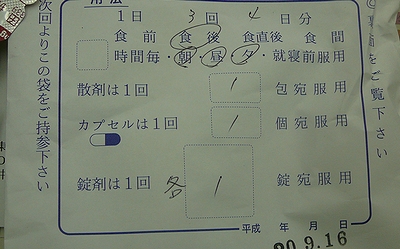 用法
1日 3回 4日分
食前 食後 食直後 食間
時間毎・朝・昼・夕・就寝前服用
散剤は1回 1 包宛服用
カプセルは1回 1 個宛服用
錠剤は1回 各 1 錠宛服用
平成 年 月 日
20.9.16
次回よりこの袋をご持参下さい
裏面をご覧下さい